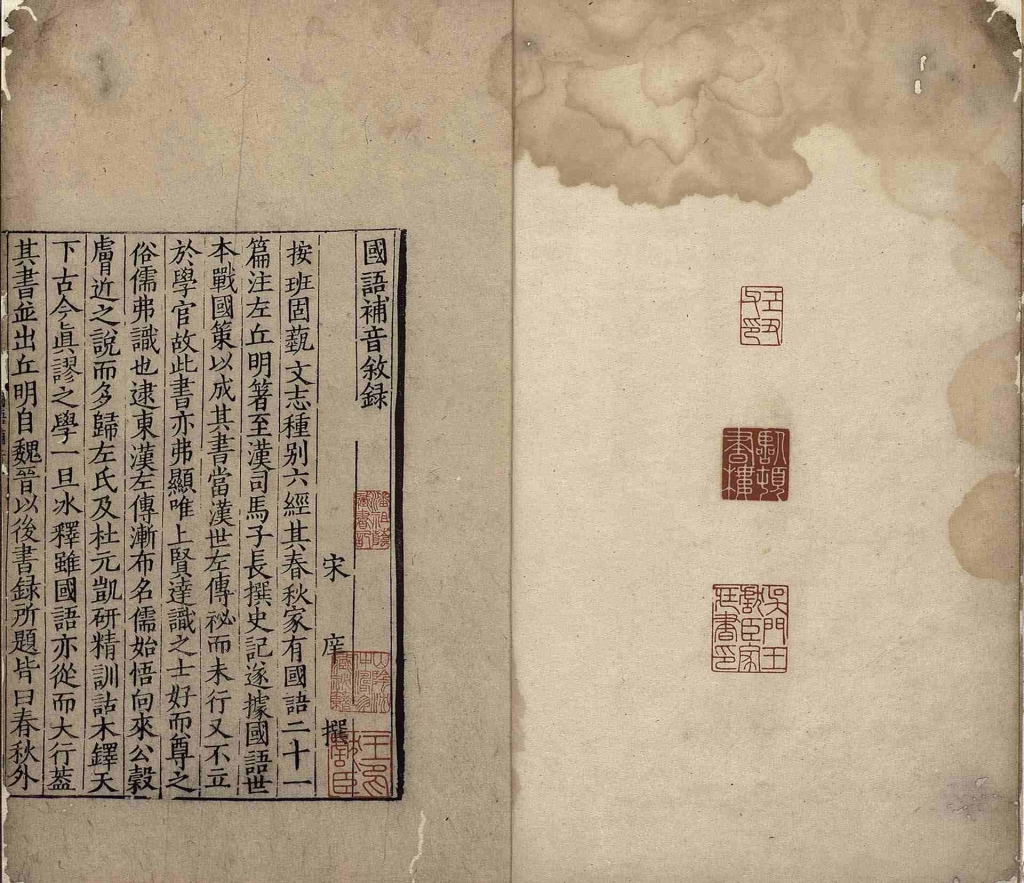 國語補音敘録
宋 庠 撰
按班固蓺文志種别六經其春秋家有國語二十一
篇注左丘明著至漢司馬子長撰史記遂據國語世
本戰國策以成其書當漢世左傳祕而未行又不立
於學官故此書亦弗顯唯上賢達識之士好而尊之
俗儒弗識也逮東漢左傳漸布名儒始悟向來公穀
膚近之說而多歸左氏及杜元凱研精訓詁木鐸天
下古今眞謬之學一旦冰釋雖國語亦從而大行葢
其書並出丘明自魏晉以後書録所題皆曰春秋外
潘祖蔭
藏書記
書樓
吳門王
獻臣家
藏書印